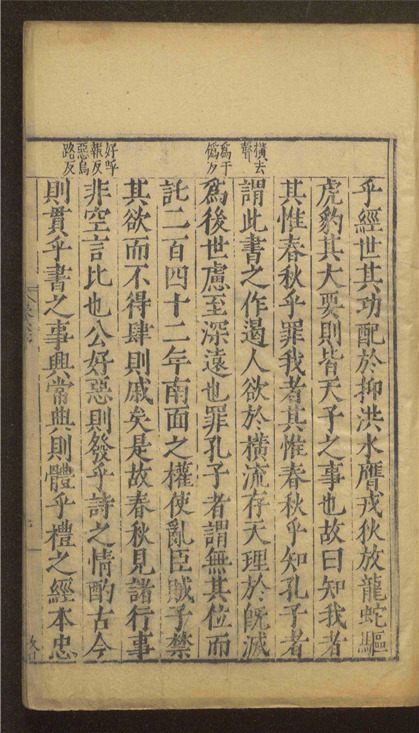 乎經世其功配於抑洪水膺戎狄放龍蛇驅
虎豹其大要則皆天子之事也故曰知我者
其惟春秋乎罪我者其惟春秋乎知孔子者
謂此書之作遏人欲於橫流存天理於旣滅
爲後世慮至深遠也罪孔子者謂無其位而
託二百四十二年南面之權使亂臣賊子禁
其欲而不得肆則戚矣是故春秋見諸行事
非空言比也公好惡則發乎詩之情酌古今
則貫乎書之事興常典則體乎禮之經本忠
橫去
聲
爲于
僞反
好呼
報反
惡烏
路反